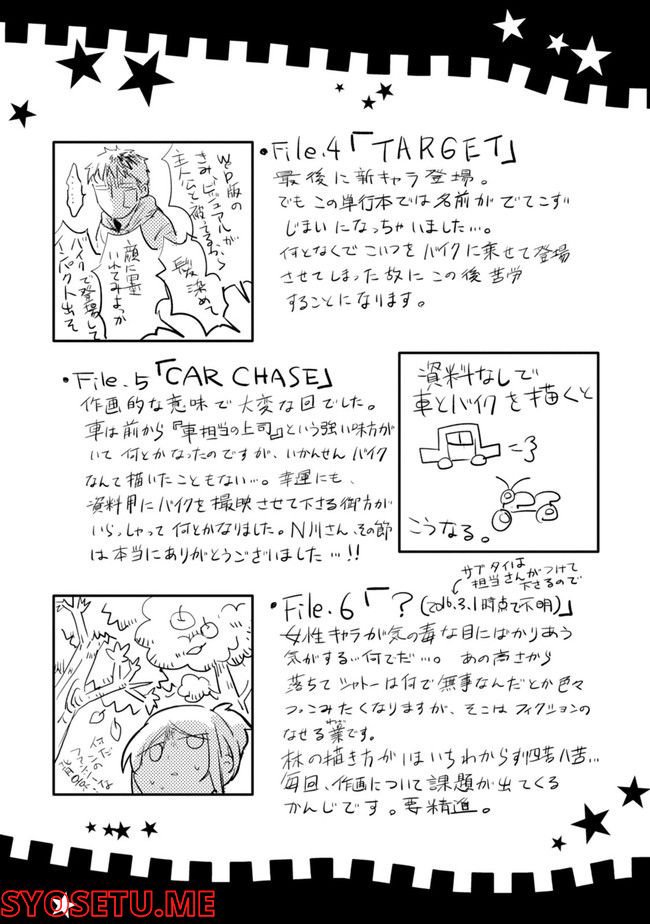 ・File.4「TARGET」
最後に新キャラ登場。
でもこの単行本では名前がでてこず
じまいになっちゃいました…。
何となくでこいつをバイクに乗せて登場
させてしまった故にこの後苦労
することになります。
WEB版の
さみ、ビジュアルが
主人公と被ってるから
髪染めて
顔に墨
いれてみよっか
バイクで登場して
インパクト出そ
……
・File.5「CAR CHASE」
作画的な意味で大変な回でした。
車は前から『車担当の上司』という強い味方が
いて何とかなったのですが、いかんせんバイク
なんて描いたこともない…。幸運にも、
資料用にバイクを撮映させて下さる御方が
いらっしゃって何とかなりました。N川さん、その節
は本当にありがとうございました…!!
資料なしで
車とバイクを描くと
こうなる。
サブタイは
担当さんがつけて
下さるので
・File.6「?(2016.3.1時点で不明)」
女性キャラが気の毒な目にばかりあう
気がする…何でだ…。あの高さから
落ちてシャトーは何で無事なんだとか色々
つっこみたくなりますが、そこはフィクションの
なせる業です。
わざ
林の描き方がいまいちわからず四苦八苦…
毎回、作画について課題が出てくる
かんじです。要精進。
何だ
この
ファンシーな
SYOSETU.ME